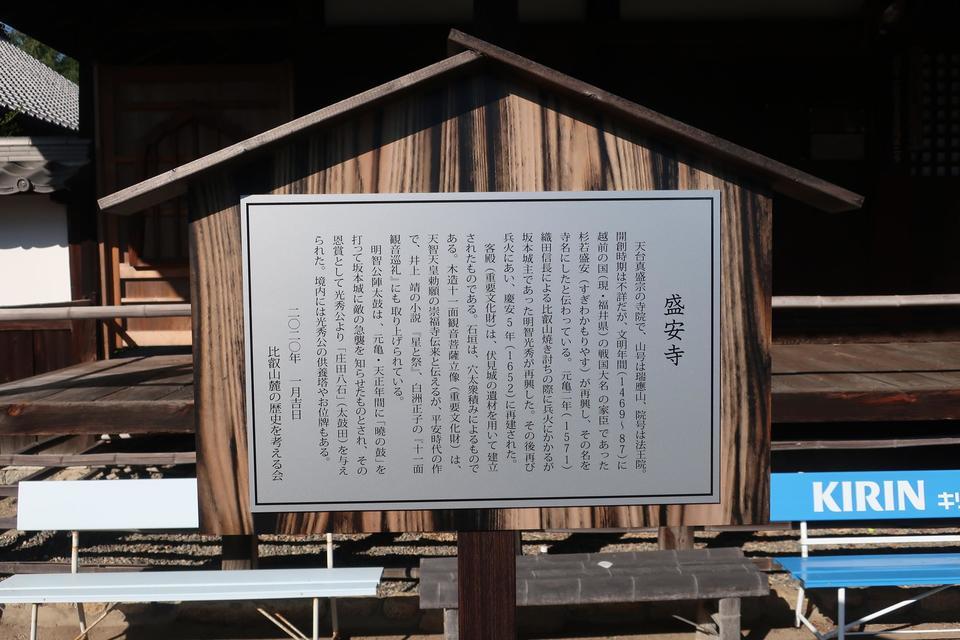 盛安寺
天台真盛宗の寺院で、山号は瑞應山、院号は法王院。
開創時期は不詳だが、文明年間（1469～87）に
越前の国（現・福井県）の戦国大名の家臣であった
杉若盛安（すぎわかもりやす）が再興し、その名を
寺名にしたと伝わっている。元亀二年（1571）
織田信長による比叡山焼き討ちの際に兵火にかかるが
坂本城主であった明智光秀が再興した。その後再び
兵火にあい、慶安5年（1652）に再建された。
客殿（重要文化財）は、伏見城の遺材を用いて建立
されたものである。石垣は、穴太衆積みによるもので
ある。木造十一面観音菩薩立像（重要文化財）は、
天智天皇勅願の崇福寺伝来と伝えるが、平安時代の作
で、井上 靖の小説『星と祭』、白洲正子の『十一面
観音巡礼』にも取り上げられている。
明智公陣太鼓は、元亀・天正年間に「曉の鼓」を
打って坂本城に敵の急襲を知らせたものとされ、その
恩賞として光秀公より「庄田八石」（太鼓田）を与え
られた。境内には光秀公の供養塔やお位牌もある。
二〇二〇年 一月吉日
比叡山麓の歴史を考える会
KIRIN キリ